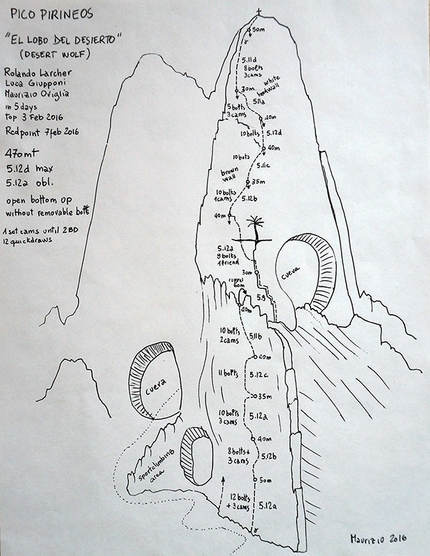 PICO PIRINEOS
"EL LOBO DEL DESIERTO"
(DESERT WOLF)
Rolando Larcher
Luca Giupponi
Maurizio Oviglia
in 5 days
Top 3 Feb 2016
Redpoint 7feb 2016
470mt
5.12d max
5.12a obl.
open bottom up
without removable bolt
1 set cams until 2 BD
12 quickdraws
50m
5.11d
8 bolts
3cams
30m
white
headwall
5.11a
5 bolts
3 cams
40m
10 bolts
5.12d
40m
10 bolts
5.11c
brown
wall
35m
10 bolts
1 cams
5.12b
40m
5.12a
9 bolts
1 friend
30m
cueva
5.9
10 bolts
2 cams
5.11b
40m
11 bolts
5.12c
cueva
35m
10 bolts
3 cams
5.12a
40m
8 bolts+
3 cams
5.12b
sportclimbing
area
50m
12 bolts
+ 3 cams
5.12a
Maurizio 2016